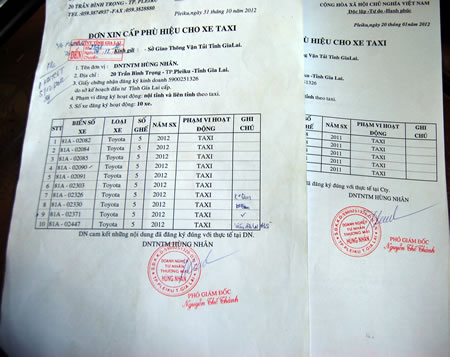 20 TRẦN BÌNH TRỌNG - TP.
ĐT: 059.3874937 FAX: 059.3828880
Pleiku, ngày 31 tháng 10 năm 2012
ĐƠN XIN CẤP PHÙ HIỆU CHO XE TAXI
ĐẾN
Kính gửi : - Sở Giao Thông Vận Tải Tỉnh GiaLai.
1. Tên đơn vị : DNTNTM HÙNG NHÂN.
2. Địa chỉ : 20 Trần Bình Trọng - TP.Pleiku -Tỉnh Gia Lai.
3. Giấy chứng nhận đăng ký kinh doanh 5900251326
do sở kế hoạch đầu tư Tỉnh Gia Lai cấp.
4. Phạm vi đăng ký hoạt động: nội tỉnh và liên tỉnh theo taxi.
5. Số xe đăng ký hoạt động: 10 xe.
STT BIỂN SỐ XE LOẠI XE SỐ GHẾ NĂM SX PHẠM VI HOẠT ĐỘNG GHI CHÚ
1 81A - 02082 Toyota 5 2012 TAXI
2 81A - 02084 Toyota 5 2012 TAXI
3 81A - 02085 Toyota 5 2012 TAXI
4 81A - 02090 Toyota 5 2012 TAXI
5 81A - 02091 Toyota 5 2012 TAXI
6 81A - 02303 Toyota 5 2012 TAXI
7 81A - 02326 Toyota 5 2012 TAXI
8 81A - 02330 Toyota 5 2012 TAXI
9 81A - 02371 Toyota 5 2012 TAXI
10 81A - 02447 Toyota 5 2012 TAXI
DN cam kết những nội dung đã đăng ký đúng với thực tế tại DN.
DNTNTM HÙNG NHÂN
DOANH NGHIỆP
TƯ NHÂN
THƯƠNG MẠI
HÙNG NHÂN
TP.PLEIKU T.GIA LAI
PHÓ GIÁM ĐỐC
Nguyễn Thế Thành
CỘNG HÒA XÃ HỘI CHỦ NGHĨA VIỆT NAM
Độc lập -Tự do -Hạnh phúc
Pleiku, ngày 20 tháng 01 năm 2012
XE TAXI
Tỉnh GiaLai.
Tỉnh Gia Lai.
taxi.
NĂM SX PHẠM VI HOẠT ĐỘNG GHI CHÚ
2011 TAXI
2011 TAXI
2011 TAXI
2011 TAXI
2011 TAXI
đăng ký đúng với thực tế tại Cty.
DNTNTM HÙNG NHÂN
DOANH NGHIỆP
TƯ NHÂN
THƯƠNG MẠI
HÙNG NHÂN
PHÓ GIÁM ĐỐC
Nguyễn Thế Thành